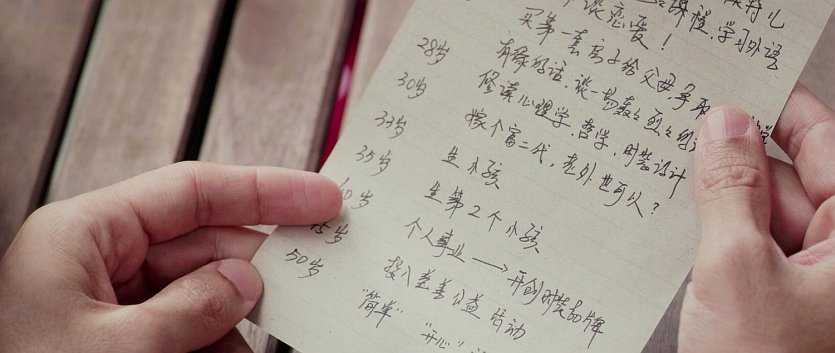 课程，学习外语
谈恋爱！
买第一套房子给父母，争取
有缘的话，谈一场轰轰烈烈的
28岁 修读心理学、哲学、时装设计
30岁 嫁个富二代，老外也可以？
33岁 生小孩
35岁 生第2个小孩
40岁 个人事业→开创时装品牌
45岁 投入慈善公益活动
50岁 “简单” “开心”